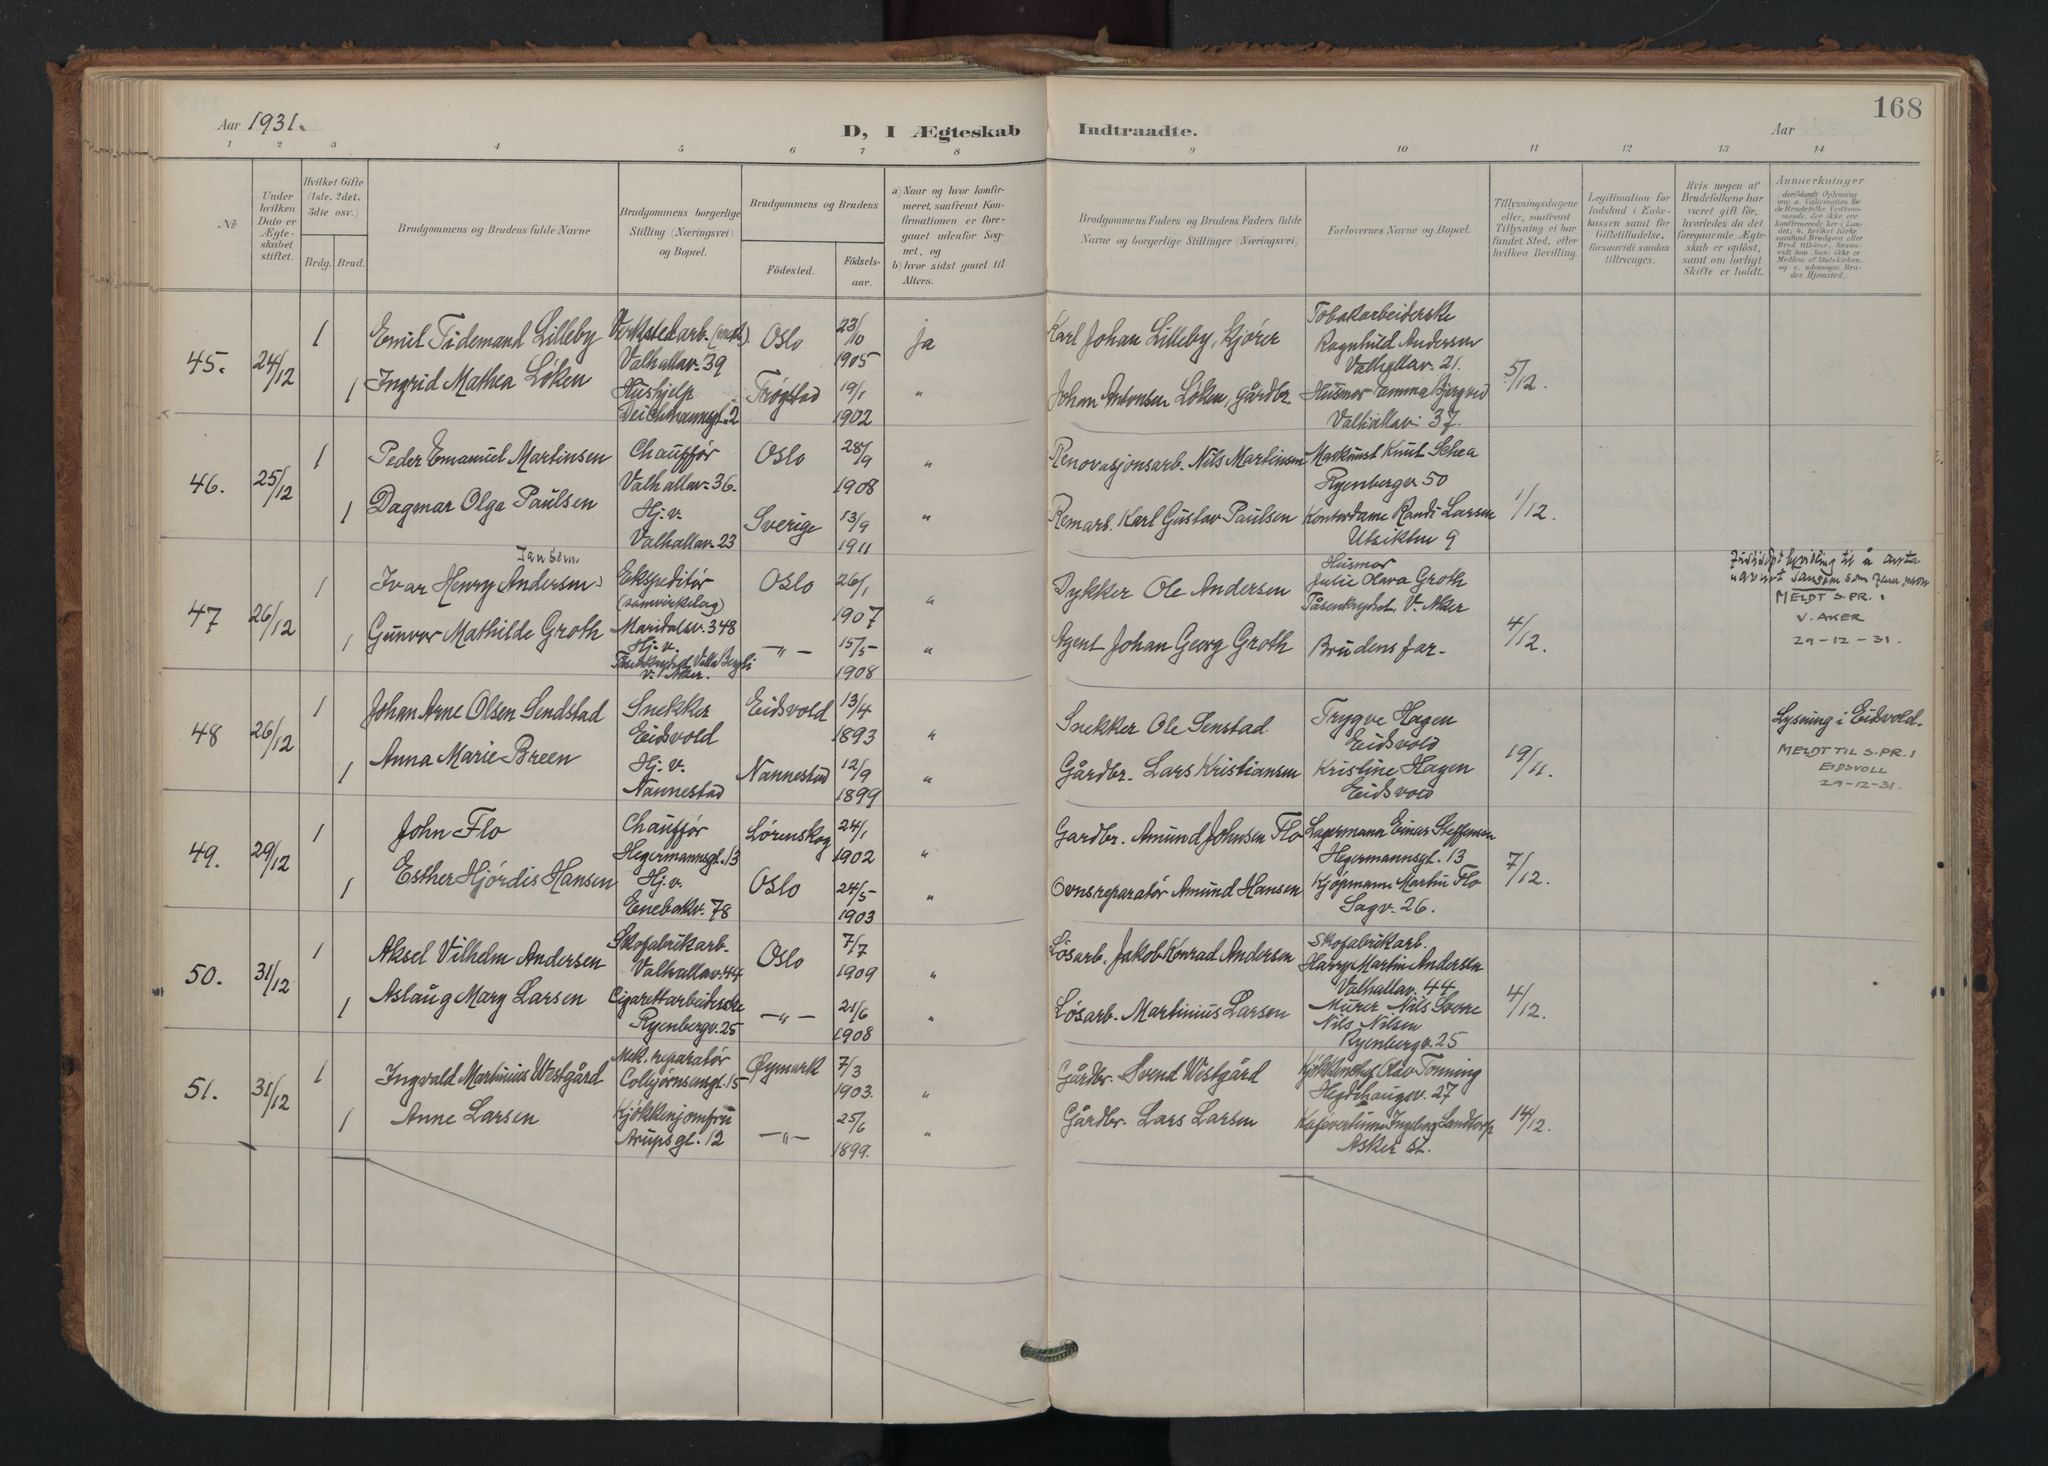 168
Aar 1931.
D, I Ægteskab Indtraadte.
Aar
1 2 3 4 5 6 7 8 9 10 11 12 13 14
No
Under hvilken Dato er Ægteskabet stiftet.
Hvilket Gifte (1ste, 2det, 3die osv.)
Brdg. Brud.
Brudgommens og Brudens fulde Navne
Brudgommens borgerlige Stilling (Næringsvei) og Bopæl.
Brudgommens og Brudens
Fødested. Fødsels-aar.
a) Naar og hvor konfirmeret, saafremt Konfirmationen er foregaaet udenfor Sognet, og
b) hvor sidst gaaet til Alters.
Brudgommens Faders og Brudens Faders fulde Navne og borgerlige Stillinger (Næringsvei).
Forlovernes Navne og Bopæl.
Tillysningsdagene eller, saafremt Tillysning ei har fundet Sted, efter hvilken Bevilling.
Legitimation for Indskud i Enkekassen samt for Giftetilladelse, forsaavidt saadan tiltrænges.
Hvis nogen af Brudefolkene har været gift før, hvorledes da det foregaaende Ægteskab er opløst, samt om lovligt Skifte er holdt.
Anmærkninger
45. 24/12
1 Emil Tidemand Lilleby
Valhallav. 39
Oslo 23/10 1905 ja
Karl Johan Lilleby, Kjører
Tobakarbeiderske
Ragnhild Andersen
Valhallav. 21.
5/12.
1 Ingrid Mathea Løken
Hushjelp
Deichmannsgt. 2
Trøgstad 19/1 1902 "
Johan Antonsen Løken, Gårdbr.
Husmor Emma
Valhallav. 37.
46. 25/12
1 Peder Emanuel Martinsen
Chauffør
Valhallav. 36.
Oslo 28/9 1908 "
Renovasjonsarb. Nils Martinsen
Knut Schea
Ryenbergv. 50
1/12.
1 Dagmar Olga Paulsen
Hj. v.
Valhallav. 23
Sverige 13/9 1911 "
Remarb. Karl Gustav Paulsen
Kontordame Randi Larsen
Utsikten 9
47 26/12
Jansen.
1 Ivar Henry Andersen
Ekspeditør
(samvirkelag)
Maridalsv. 348
Oslo 26/1 1907 "
Dykker Ole Andersen
Husmor
Julie Olava Groth
V. Aker
4/12.
navnet Jansen som
MELDT S.PR. I
V. AKER
29-12-31.
1 Gunvor Mathilde Groth
Hj. v.
V. Aker.
—"— 15/5 1908 "
Agent Johan Georg Groth
Brudens far.
48 26/12
1 Johan Arne Olsen Sendstad
Snekker
Eidsvold
Eidsvold 13/4 1893 "
Snekker Ole Senstad
Trygve Hagen
Eidsvold
19/11.
Lysning i Eidsvold.
MELDT TIL S.PR. I
EIDSVOLL
29-12-31.
1 Anna Marie Breen
Hj. v.
Nannestad
Nannestad 12/9 1899 "
Gårdbr. Lars Kristiansen
Kristine Hagen
Eidsvold
49. 29/12
1 John Flo
Chauffør
Hegermannsgt. 13
Lørenskog 24/1 1902 "
Gardbr. Amund Johnsen Flo
Lagermann Einar Steffensen
Hegermannsgt. 13
7/12.
1 Esther Hjørdis Hansen
Hj. v.
Enebakv. 78
Oslo 24/5 1903 "
Ovnsreparatør Amund Hansen
Kjøpmann Martin Flo
Sagv. 26.
50. 31/12
1 Aksel Vilhelm Andersen
Skofabrikarb.
Valhallav. 44
Oslo 7/7 1909 "
Løsarb. Jakob Konrad Andersen
Skofabrikarb.
Harry Martin Andersen
Valhallav. 44
4/12.
1 Aslaug Mary Larsen
Cigarettarbeiderske
Ryenbergv. 25
—"— 21/6 1908 "
Løsarb. Martinius Larsen
Murer Nils
Nils Nilsen
Ryenbergv. 25
51. 31/12
1 Ingvald Martinius Westgård
Mek. reparatør
Colbjørnsensgt. 15
Øymark 7/3 1903. "
Gårdbr. Svend Westgård
Kjøkkenchef Olav Tonning
Hegdehaugsv. 27
14/12.
1 Anne Larsen
Kjøkkenjomfru
Arupsgt. 12
—"— 25/6 1899. "
Gårdbr. Lars Larsen
Ingeborg
Asker st.